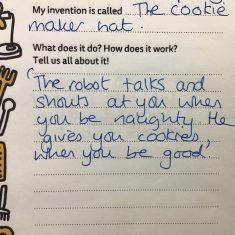 My invention is called The cookie
maker hat.
What does it do? How does it work?
Tell us all about it!
'The robot talks and
shouts at you when
you be naughty He
gives you cookies
when you be good'